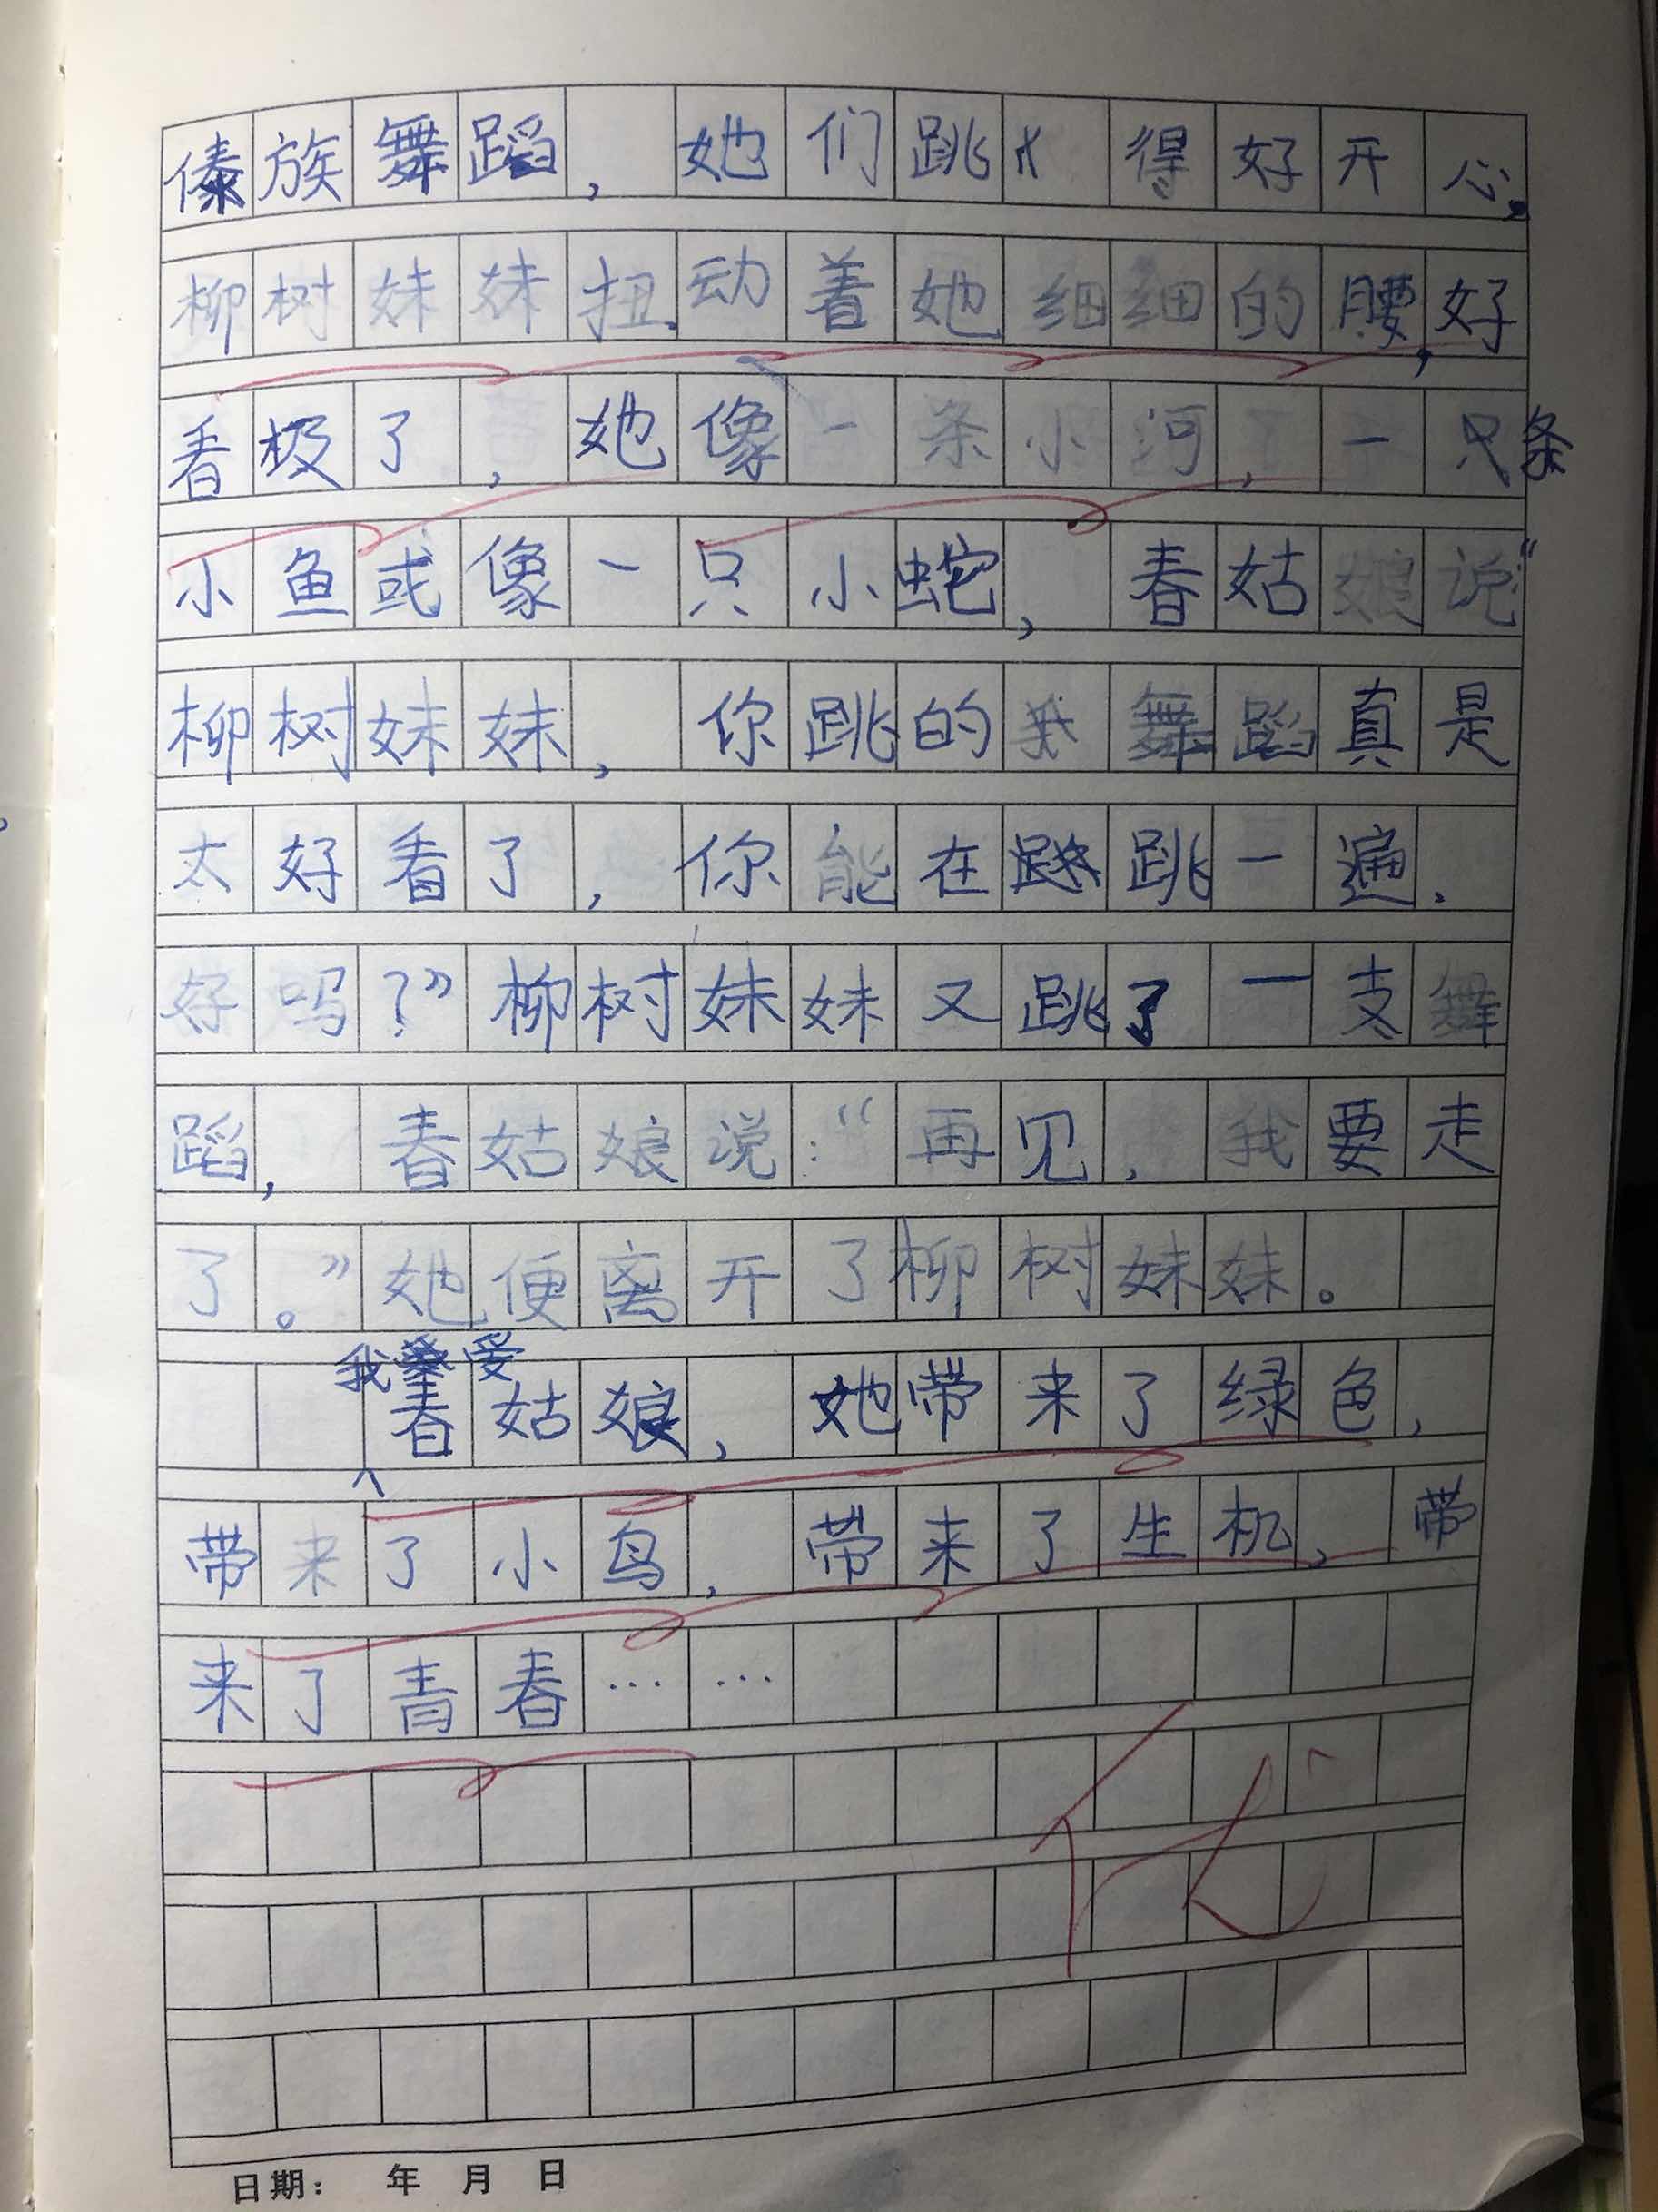 傣族舞蹈，她们跳得好开心。
柳树妹妹扭动着她细细的腰，好
看极了，她像一条小河，一条
小鱼或像一只小蛇，春姑娘说“
柳树妹妹，你跳的舞蹈真是
太好看了，你能在跳一遍，
好吗？”柳树妹妹又跳了一支舞
蹈，春姑娘说：“再见，我要走
了。”她便离开了柳树妹妹。
我爱春姑娘，她带来了绿色，
带来了小鸟，带来了生机，带
来了青春……
优
日期： 年 月 日